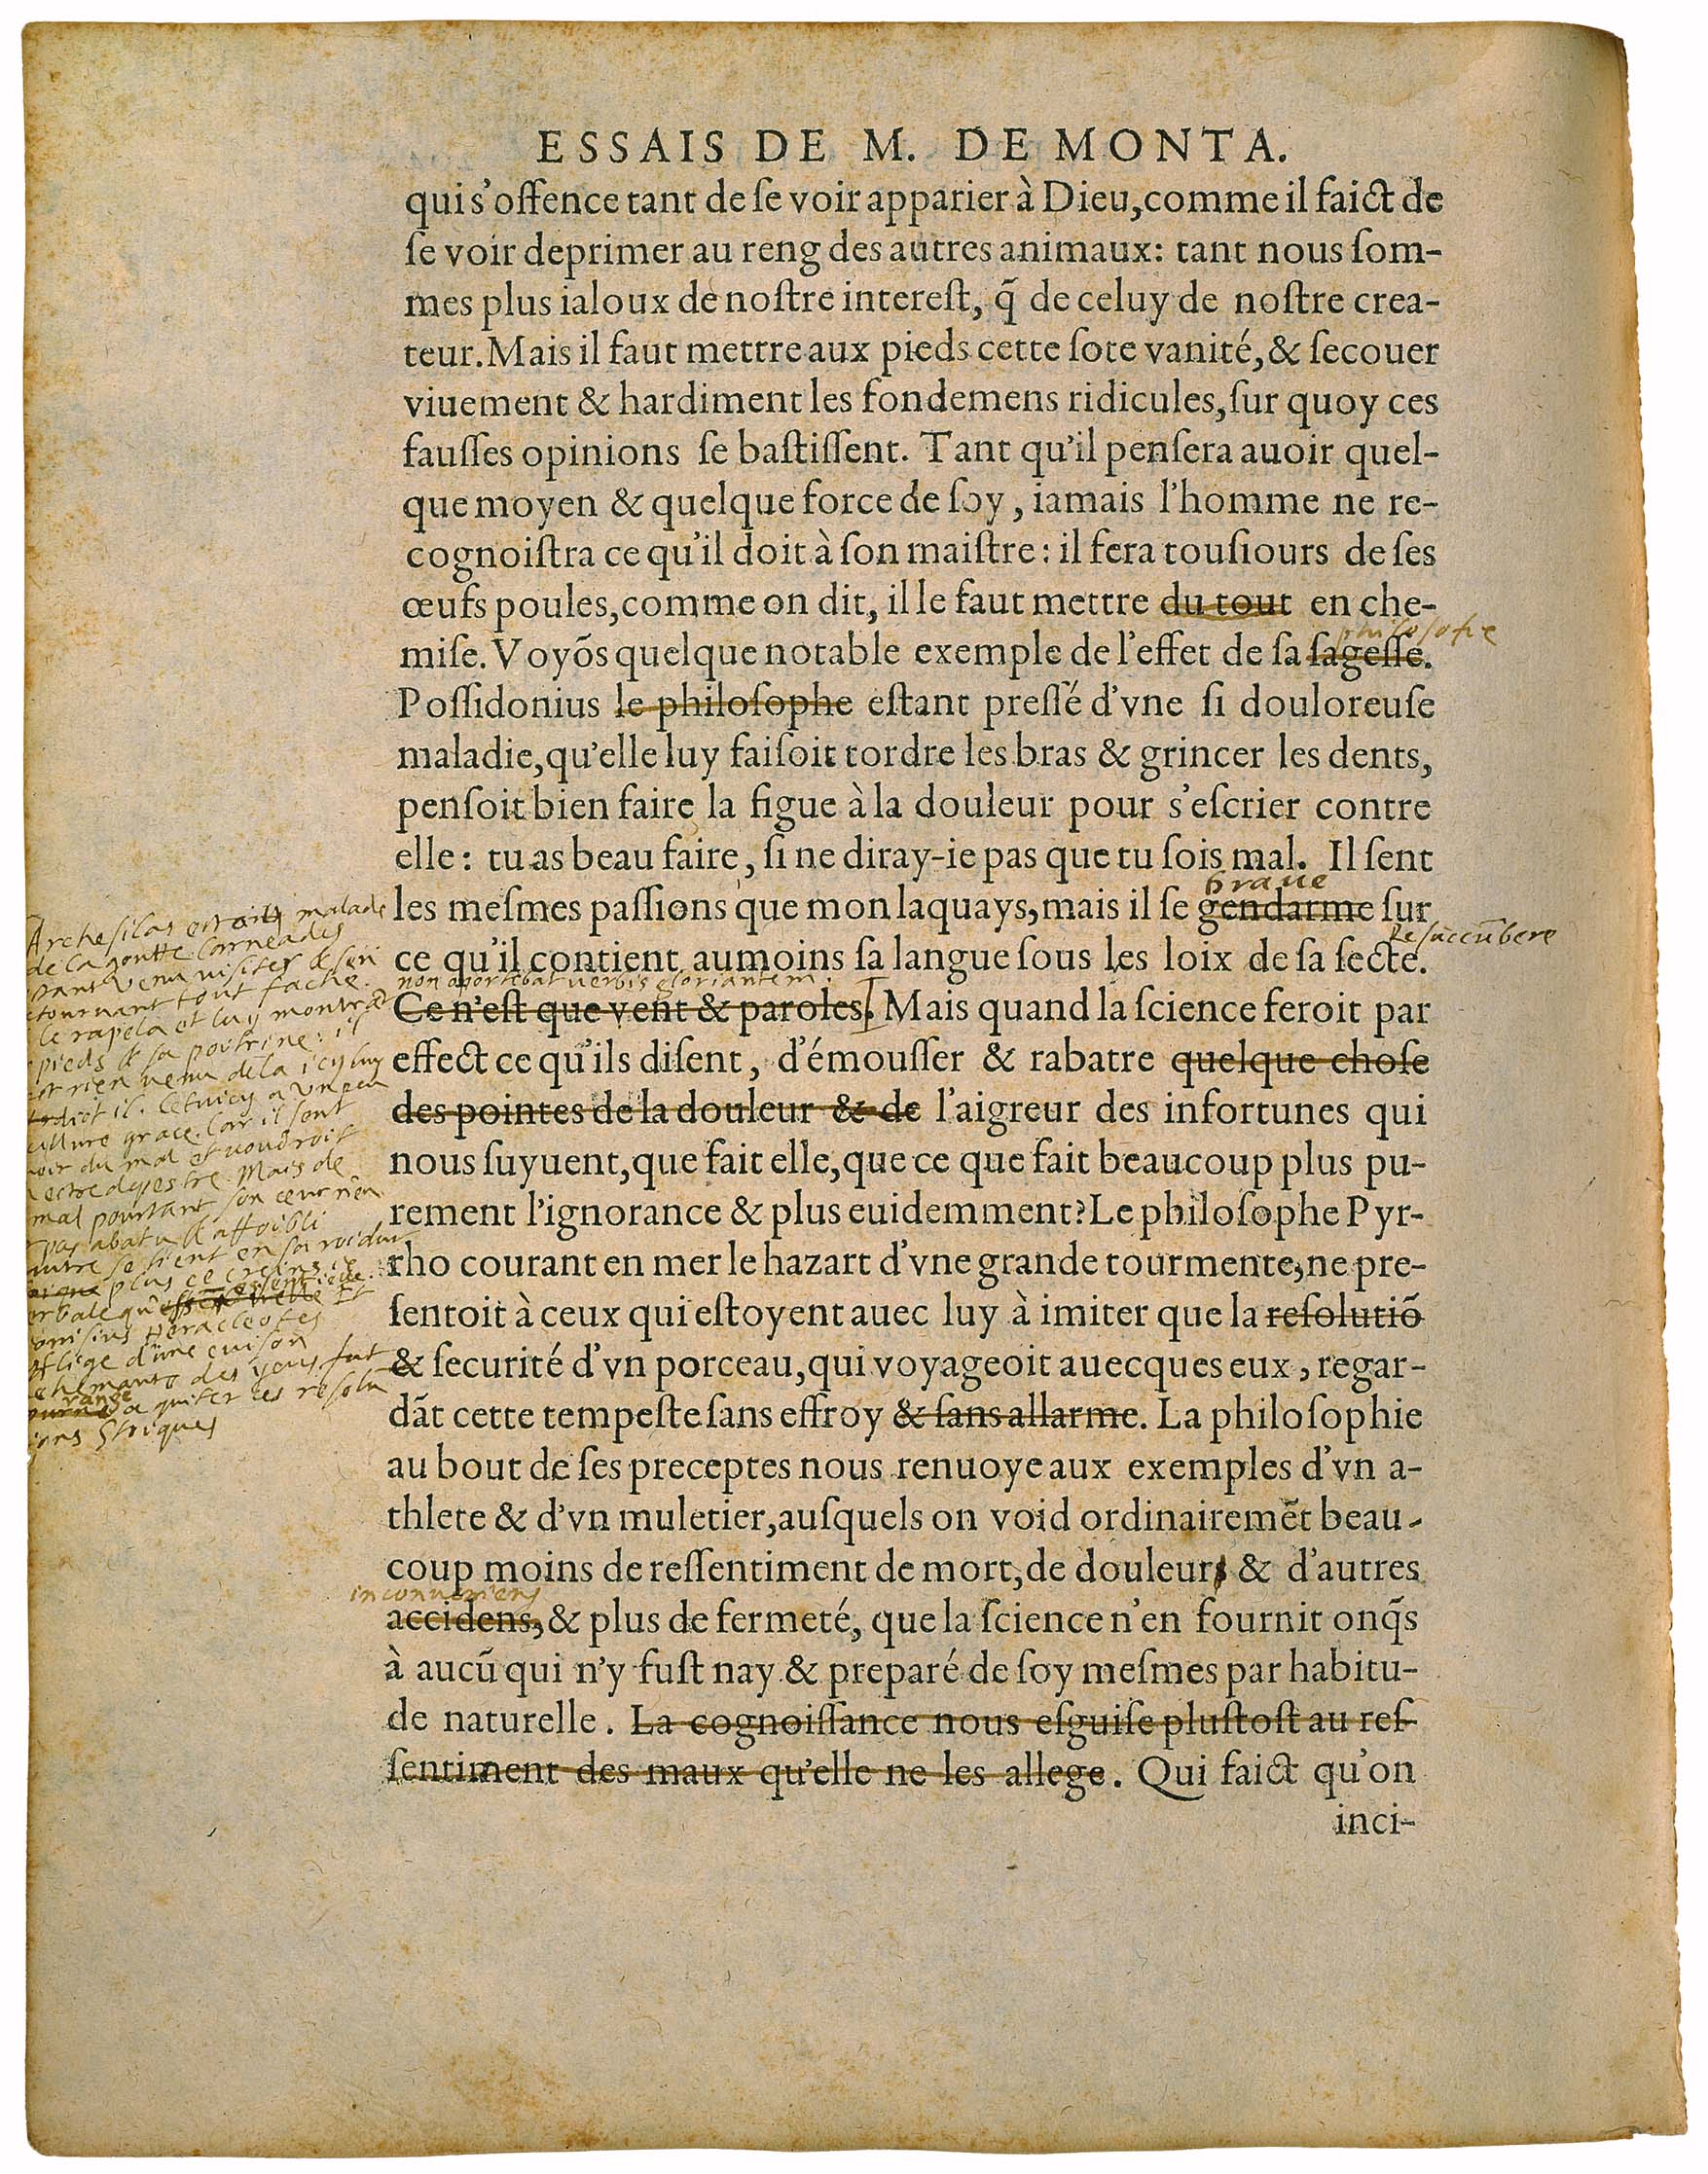 ESSAIS DE M. DE MONTA.
qui s'offence tant de ſe voir apparier à Dieu,comme il faict de
ſe voir deprimer au reng des autres animaux: tant nous ſom-
mes plus ialoux de noſtre intereſt, q̃ de celuy de noſtre crea-
teur. Mais il faut mettre aux pieds cette ſote vanité,& ſecouer
viuement & hardiment les fondemens ridicules,ſur quoy ces
fauſſes opinions ſe baſtiſſent. Tant qu'il penſera auoir quel-
que moyen & quelque force de ſoy, iamais l'homme ne re-
cognoiſtra ce qu'il doit à ſon maiſtre: il fera touſiours de ſes
œufs poules,comme on dit, il le faut mettre du tout en che-
philosofie
miſe. Voyõs quelque notable exemple de l'effet de ſa ſageſſe.
Poſſidonius le philoſophe eſtant preſſé d'vne ſi douloreuſe
maladie,qu'elle luy faiſoit tordre les bras & grincer les dents,
penſoit bien faire la figue à la douleur pour s'eſcrier contre
elle: tu as beau faire, ſi ne diray-ie pas que tu ſois mal. Il ſent
braue
les meſmes paſſions que mon laquays,mais il ſe gendarme ſur
ce qu'il contient aumoins ſa langue ſous les loix de ſa ſecte.
Re succũbere
non oportebat verbis gloriantem.
Ce n'eſt que vent & paroles. Mais quand la ſcience feroit par
effect ce qu'ils diſent, d'émouſſer & rabatre quelque choſe
des pointes de la douleur & de l'aigreur des infortunes qui
nous ſuyuent,que fait elle,que ce que fait beaucoup plus pu-
rement l'ignorance & plus euidemment? Le philoſophe Pyr-
rho courant en mer le hazart d'vne grande tourmente,ne pre-
ſentoit à ceux qui eſtoyent auec luy à imiter que la reſolutiõ
& ſecurité d'vn porceau,qui voyageoit auecques eux, regar-
dãt cette tempeſte ſans effroy & ſans allarme. La philoſophie
au bout de ſes preceptes nous renuoye aux exemples d'vn a-
thlete & d'vn muletier,auſquels on void ordinairemẽt beau-
coup moins de reſſentiment de mort,de douleur, & d'autres
inconveniens
accidens,& plus de fermeté, que la ſcience n'en fournit onq̃s
à aucũ qui n'y fuſt nay & preparé de ſoy meſmes par habitu-
de naturelle. La cognoiſſance nous eſguiſe pluſtoſt au reſ-
ſentiment des maux qu'elle ne les allege. Qui faict qu'on
inci-
Archesilas estoit malade
de la goutte Carneades
venu visiter & s'en
tournant tout fache
le rapela et luy montrãt
pieds & sa poitrine: il
rien venu de la icy luy
dict il. Cetuicy a un peu
grace. Car il sent
du mal et voudroit
estre Mais de
mal pourtant son ceur n'en
pas abatu & affoibli
se tient en sa roidur
plus ce creins je
essentielle. Et
Heracleotes
d'une cuison
des yeus fut
range a quiter ces resolu
Stoiques